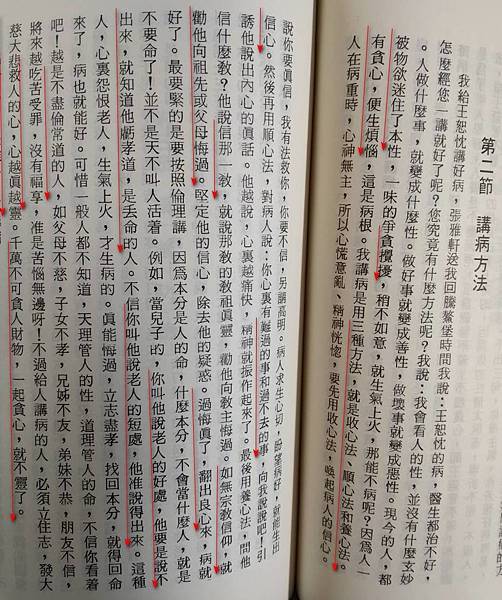 第二節 講病方法
我給王恕忱講好病,張雅軒送我回騰鰲堡時問我說:王恕忱的病,醫生都治不好,
怎麼經您一講就好了呢?您究竟有什麼方法呢?我說:我會看人的性,並沒有什麼玄妙
。人做什麼事,就變成什麼性。做好事就變成善性,做壞事就變成惡性。現今的人,都
被物欲迷住了本性,一味的爭貪攪擾,稍不如意,就生氣上火,那能不病呢?因爲人一
有貪心,便生煩惱,這是病根。我講病是用三種方法,就是收心法、順心法和養心法。
人在病重時,心神無主,所以心慌意亂、精神恍惚,要先用收心法,喚起病人的信心。
說你要眞信,我有法救你,你要不信,另請高明。病人求生心切,盼望病好,就能生出
信心。然後再用順心法,對病人說:你心裏有難過的事和過不去的事,向我說說吧!引
誘他說出內心的眞話。他越說,心裏越痛快,精神就振作起來了。最後用養心法,問他
信什麼教?他說信那一教,就說那教的教祖眞靈,勸他向教主悔過。如無宗教信仰,就
勸他向祖先或父母悔過。堅定他的信心,除去他的疑惑。過悔眞了,翻出良心來,病就
好了。最要緊的是要按照倫理講,因爲本分是人的命,什麼本分,不會當什麼人,就是
不要命了!並不是天不叫人活着。例如,當兒子的,你叫他說老人的好處,他要是說不
出來,就知道他虧孝道,是丢命的人。不信你叫他說老人的短處,他准說得出來。這種
人,心裏怨恨老人,生氣上火,才生病的。眞能悔過,立志盡孝,找回本分,就得回命
來了,病也就能好。可惜一般人都不知道,天理管人的性,道理管人的命,不信你看着
吧!越是不盡倫常道的人,如父母不慈,子女不孝,兄姊不友,弟妹不恭,朋友不信,
將來越吃苦受罪,沒有福享,准是苦惱無邊呀!不過給人講病的人,必須立住志,發大
慈大悲救人的心,心越眞越靈。千萬不可貪人財物,一起貪心,就不靈了。